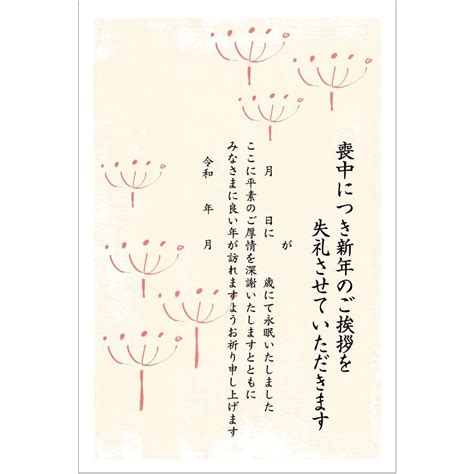 喪中につき新年のご挨拶を
失礼させていただきます
が
月　日に　　歳にて永眠いたしました
ここに平素のご厚情を深謝いたしますとともに
みなさまに良い年が訪れますようお祈り申し上げます
令和　年　月